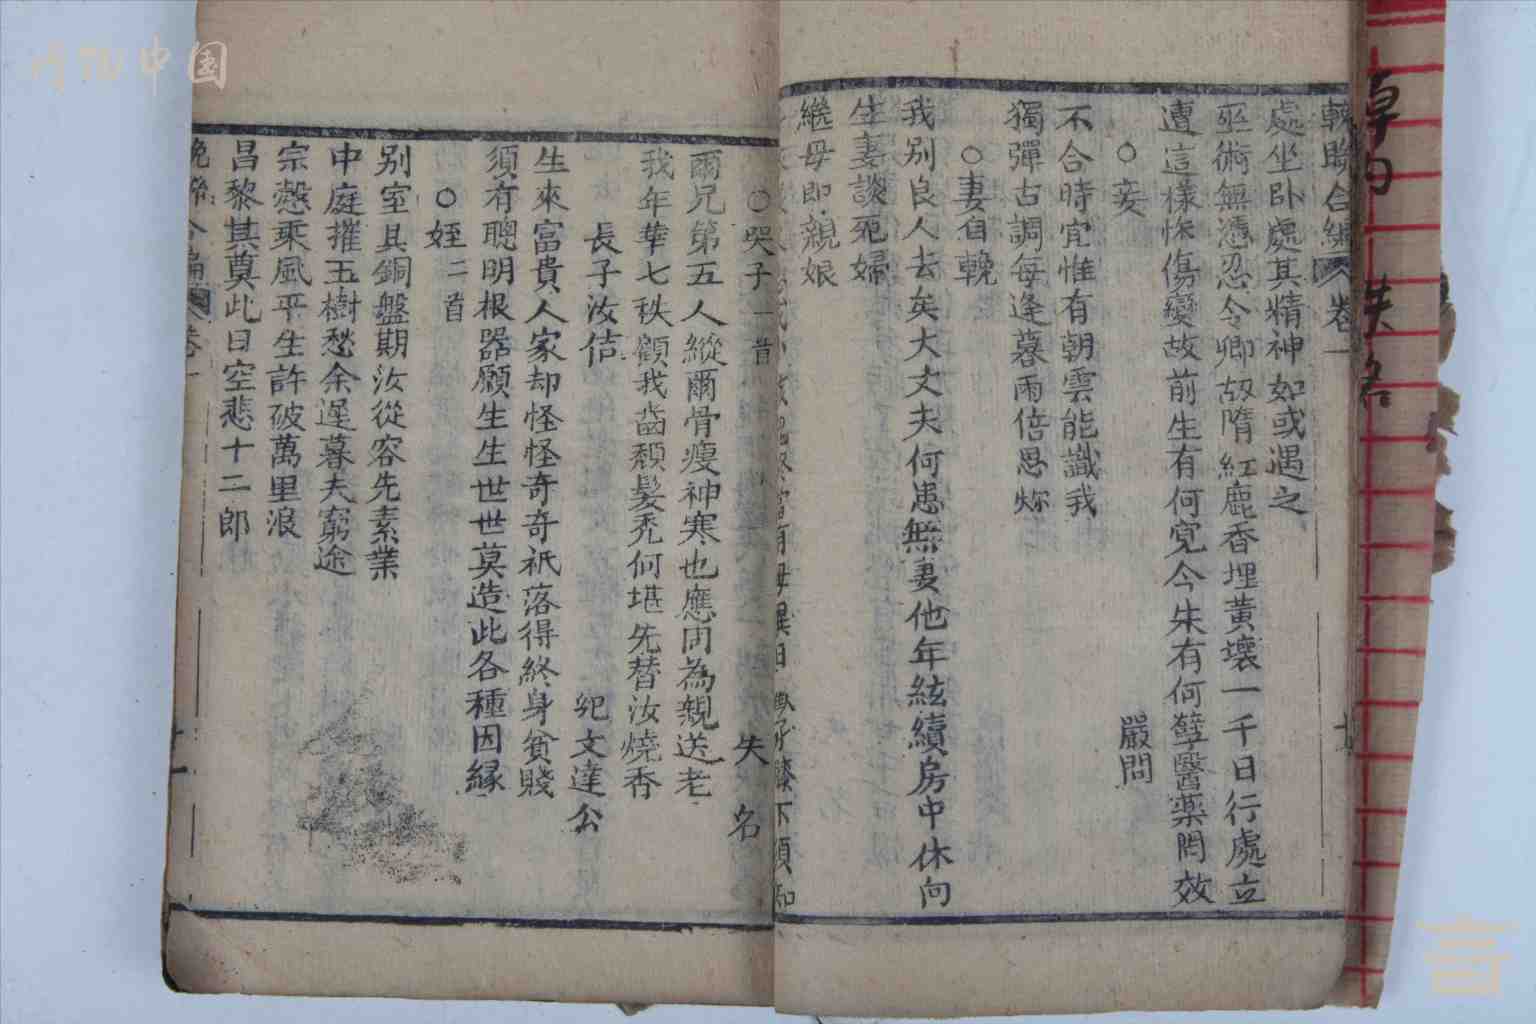 輓聯合編 卷一
處坐卧處其精神如或遇之
巫術無憑忍令卿故隋紅鹿香埋黃壤一千日行處立
遭這樣慘傷變故前生有何冤今朱有何孽醫藥罔效
○妾
嚴問
不合時宜惟有朝雲能識我
獨彈古調每逢暮雨倍思妳
○妻自輓
我別良人去矣大丈夫何患無妻他年絃續房中休向
生妻談死婦
繼母即親娘
○哭子一首
失名
爾兄第五人縱爾骨瘦神寒也應同為親送老
我年華七秩顧我齒頹髮禿何堪先替汝燒香
長子汝佶
紀文達公
生來富貴人家却怪怪奇奇祇落得終身貧賤
須有聰明根器願生生世世莫造此各種因緣
○姪二首
別室具銅盤期汝從容先素業
中庭摧玉樹愁余遲暮夫窮途
宗慤乘風平生許破萬里浪
昌黎其奠此日空悲十二郎
中国
言